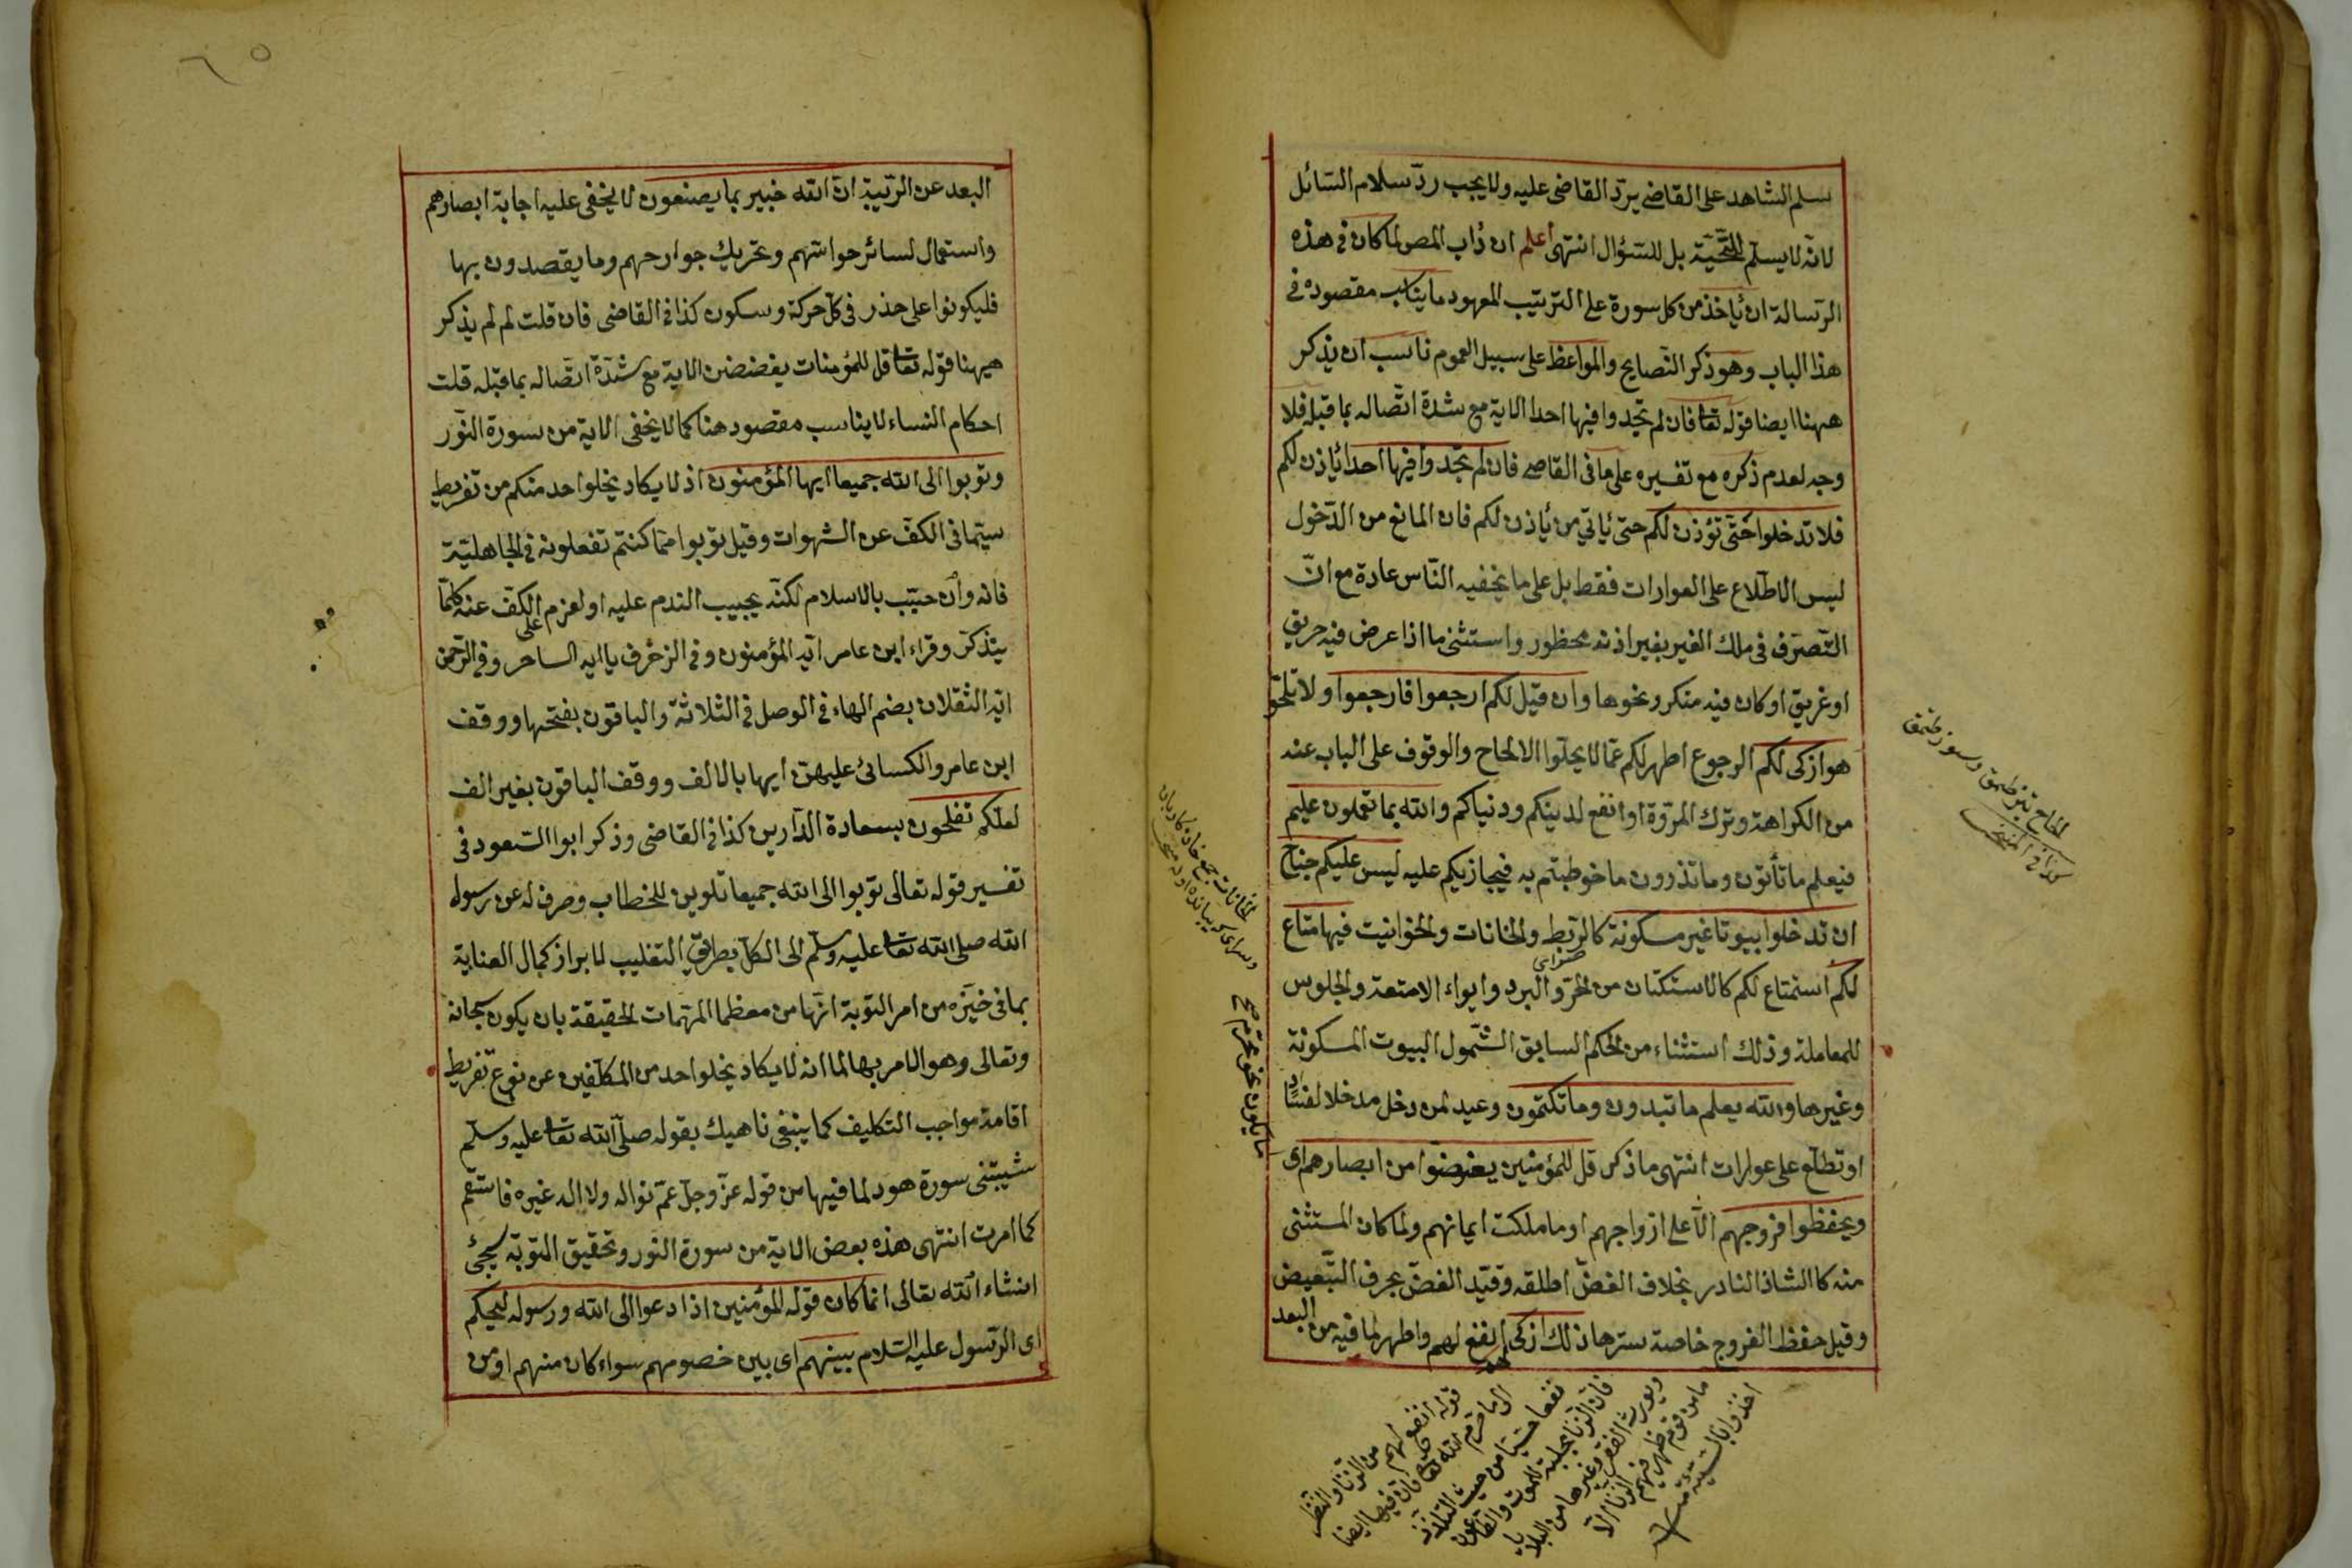 سلم الشاهد على القاضى يردّ القاضى عليه ولا يجب ردّ سلام السّائل
لانّه لا يسلّم للتّحيّة بل للسّؤال انتهى اعلم ان دأب المص لما كان فى هذه
الرّسالة ان يأخذ من كل سورة على الترتيب المعهود ما يناسب مقصوده فى
هذا الباب وهو ذكر النّصايح والمواعظ على سبيل العموم ناسب ان يذكر
ههنا ايضا قوله تعا فان لم تجدوا فيها احدا الاية مع شدة اتّصاله بما قبله فلا
وجه لعدم ذكره مع تفسيره على ما فى القاضى فان لم تجدوا فيها احدا يأذن لكم
فلا تدخلوا حتّى تؤذن لكم حتى يأتي من يأذن لكم فان المانع من الدّخول
ليس الاطّلاع على العوارات فقط بل على ما يخفيه النّاس عادة مع انّ
التّصرّف فى ملك الغير بغير اذنه محظور واستثنى ما اذا عرض فيه حريق
او غريق او كان فيه منكر ونحوها وان قيل لكم ارجعوا فارجعوا ولا تلحّوا
هو ازكى لكم الرجوع اطهر لكم عمّا لا يخلوا الالحاح والوقوف على الباب عنه
من الكراهة وترك المروّة او انفع لدينكم ودنياكم والله بما تعملون عليم
فيعلم ما تأتون وما تذرون مما خوطبتم به فيجازيكم عليه ليس عليكم جناح
ان تدخلوا بيوتا غير مسكونة كالرّبط والخانات والحوانيت فيها متاع
لكم استمتاع لكم كالاستكنان من الحرّ والبرد وايواء الامتعة والجلوس
للمعاملة وذلك استثناء من الحكم السابق الشّمول البيوت المسكونة
وغيرها والله يعلم ما تبدون وما تكتمون وعيد لمن دخل مدخلا لفساد
او تطلّع على عوارات انتهى ما ذكر قل للمؤمنين يغضوا من ابصارهم اى
ويحفظوا فروجهم الّا على ازواجهم او ما ملكت ايمانهم ولما كان المستثنى
منه كالشاذ النادر بخلاف الغضّ اطلقه وقيّد الغضّ بحرف التّبعيض
وقيل حفظ الفروج خاصة سترها ذلك ازكى لهم انفع لهم واطهر لما فيه من البعد
قوله انفع لهم من الزنا والنظر
الى ما حرم الله تعا فان فيها ايضا
نفعا حسّيّا من حيث التلذّذ
فان الزنا يجلب الموت والطاعون
ويورث الفقر وغيرها من البلايا
ما من قوم ظهر فيهم الزنا الّا
اخذوا بالسنة
ما يكون نحو محرّم صح
٦٥
البعد عن الرّيبة انّ الله خبير بما يصنعون لا يخفى عليه اجابة ابصارهم
واستعمال لسائر حواسّهم وتحريك جوارحهم وما يقصدون بها
فليكونوا على حذر فى كلّ حركة وسكون كذا فى القاضى فان قلت لم لم يذكر
ههنا قوله تعا قل للمؤمنات يغضضن الاية مع شدّة اتّصاله بما قبله قلت
احكام النساء لا يناسب مقصود هنا كما لا يخفى الاية من سورة النّور
وتوبوا الى الله جميعا ايها المؤمنون اذ لا يكاد يخلوا احد منكم من تفريط
سيّما فى الكفّ عن الشهوات وقيل توبوا ممّا كنتم تفعلونه فى الجاهليّة
فانه وان جبّ بالاسلام لكنّه يجب الندم عليه او العزم على الكفّ عنه كلّما
يتذكّر وقراء ابن عامر ايّه المؤمنون وفى الزخرف يا ايه الساحر وفى الرّحمن
ايّه الثقلان بضم الهاء فى الوصل فى الثلاثة والباقون بفتحها ووقف
ابن عامر والكسائى عليهنّ ايها بالالف ووقف الباقون بغير الف
لعلّكم تفلحون بسعادة الدّارين كذا فى القاضى وذكر ابوا السّعود فى
تفسير قوله تعالى توبوا الى الله جميعا تلوين للخطاب وصرف له عن رسول
الله صلى الله تعا عليه وسلّم الى الكلّ بطريق التغليب لابراز كمال العناية
بما فى حيّزه من امر التوبة انّها من معظما المهمّات الحقيقة بان يكون سبحانه
وتعالى وهو الامر بها لما انه لا يكاد يخلوا احد من المكلّفين عن نوع تفريط
اقامة مواجب التكليف كما ينبغى ناهيك بقوله صلّى الله تعا عليه وسلّم
شيّبتنى سورة هود لما فيها من قوله عزّ وجلّ عمّ نواله ولا اله غيره فاستقم
كما امرت انتهى هذه بعض الاية من سورة النور وتحقيق التوبة سيجئ
انشاء الله تعالى انما كان قوله المؤمنين اذا دعوا الى الله ورسوله ليحكم
اى الرّسول عليه السّلام بينهم اى بين خصومهم سواء كان منهم او من